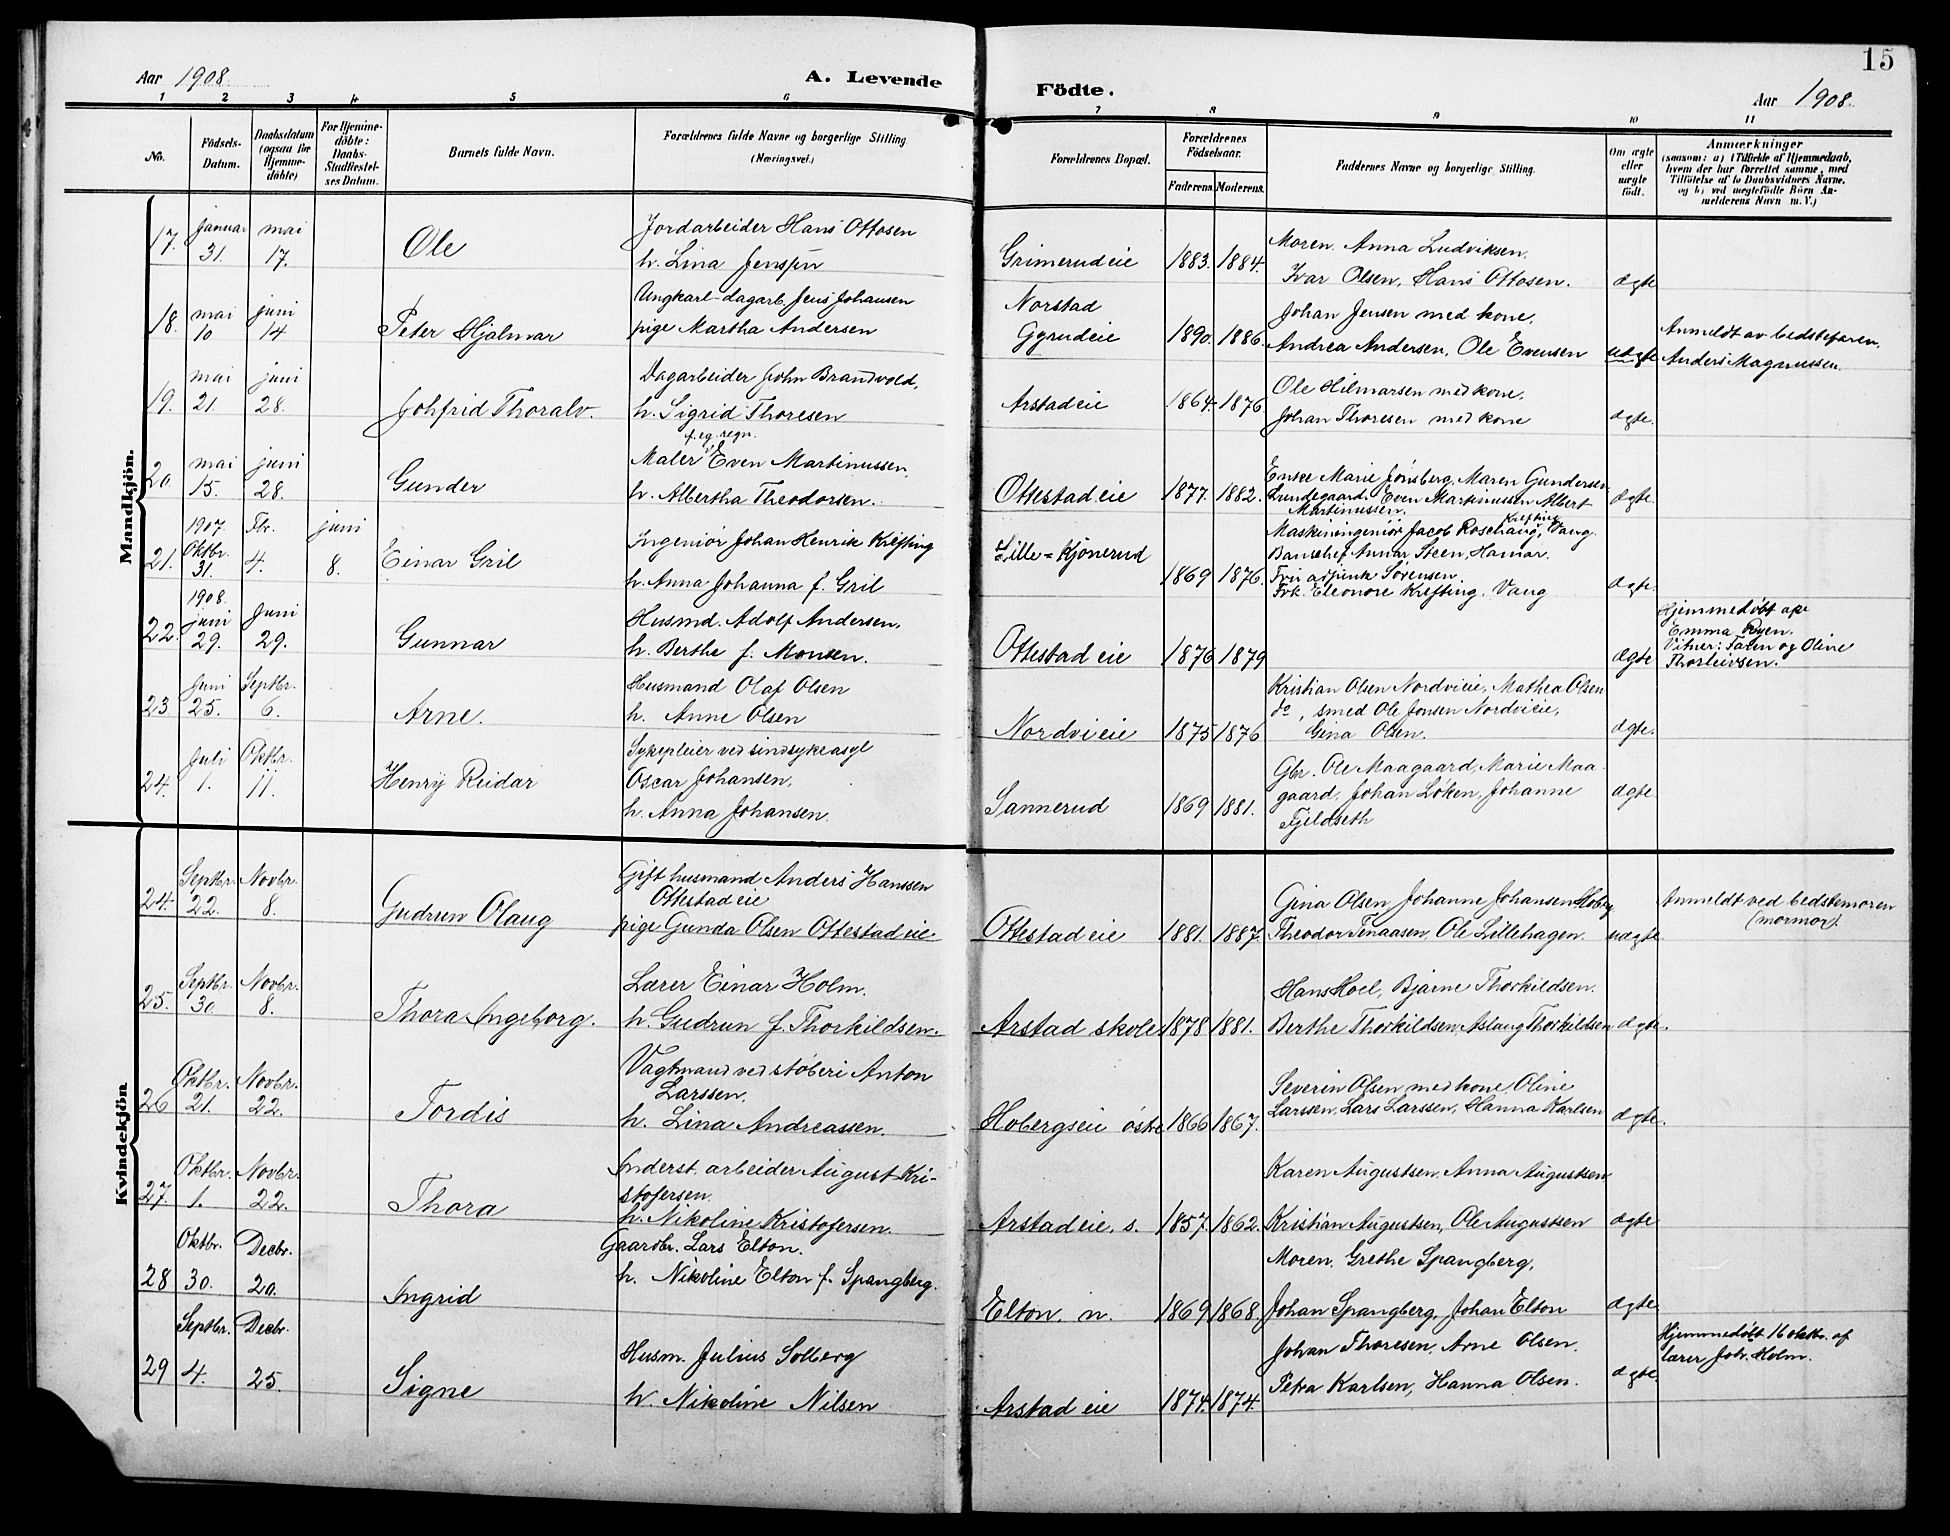 15
Aar 1908.
A. Levende
Födte.
Aar 1908.
1 2 3 4 5 6 7 8 9 10 11
No.
Födsels-
Datum.
Daabsdatum
(ogsaa for
Hjemme-
döbte)
For Hjemme-
döbte:
Daabs-
Stadfæstel-
ses Datum.
Barnets fulde Navn.
Forældrenes fulde Navne og borgerlige Stilling
(Næringsvei.)
Forældrenes Bopæl.
Forældrenes
Födselsaar.
Faderens.
Moderens.
Faddernes Navne og borgerlige Stilling.
Om ægte
eller
uægte
födt.
Anmærkninger
(saasom: a) i Tilfælde af Hjemmedaab,
hvem der har forrettet samme, med
Tilföielse af to Daabsvidners Navne,
og b) ved uægtefödte Börn An-
melderens Navn m. V.)
Mandkjön.
17. januar 31. mai 17.
Ole
Jordarbeider Hans Ottosen
h. Lina Jenssen
Grimerudeie 1883. 1884.
Moren, Anna Ludviksen.
Ivar Olsen, Hans Ottosen.
ægte
18. mai 10 juni 14
Peter Hjalmar
Ungkarl-dagarb. Jens Johansen
pige Martha Andersen
Norstad
Gyrudeie 1890. 1886.
Johan Jensen med kone,
Andrea Andersen, Ole Evensen
uægte
Anmeldt av bedstefaren,
Anders Magnussen.
19. mai 21. juni 28.
Johfrid Thoralv.
Dagarbeider John Brandvold,
h. Sigrid Thoresen
Arstadeie 1864. 1876.
Ole Hilmarsen med kone,
Johan Thoresen med kone
ægte.
20. mai 15. juni 28.
Gunder
f. eg. regn.
Maler Even Martinussen,
h. Albertha Theodorsen.
Ottestadeie 1877. 1882.
Enke Marie Jønsberg, Maren Gundersen
Lundegaard. Even Martinussen Albert
Martinussen.
ægte.
21. 1907. Oktbr. 31. Fbr. 4. juni 8.
Einar Gril
Ingeniør Johan Henrik Krefting
h. Anna Johanna f. Gril
Lille-Kjønerud 1869 1876.
Krefting
Maskiningeniør Jacob Roschauw, Vang.
Banechef Annar Steen, Hamar.
Fru adjunk Sørensen.
Frk. Eleonore Krefting. Vang
ægte.
22. 1908. juni 29. Juni 29.
Gunnar
Husmd. Adolf Andersen,
h. Berthe f. Monsen.
Ottestadeie 1876 1879
ægte
Hjemmedøbt av
Emma Ryen.
Vitner: Faren og Oline
Thorleivsen.
23 Juni 25. Septbr. 6.
Arne.
Husmand Olaf Olsen
h. Anne Olsen
Nordvieie 1875 1876
Kristian Olsen Nordvieie, Mathea Olsen
do, smed Ole Jonsen Nordvieie,
Gina Olsen.
ægte.
24. Juli 1. Oktbr. 11.
Henry Reidar
Sykepleier ved sindsykeasyl
Oscar Johansen,
h. Anna Johansen.
Sannerud 1869 1881.
Gbr. Ole Maagaard, Marie Maa-
gaard, Johan Løken, Johanne
Fjeldseth
ægte
Kvindekjön
24. Septbr. 22. Novbr. 8.
Gudrun Olaug
Gift husmand Anders Hanssen
Ottestadeie
pige Gunda Olsen Ottestadeie.
Ottestadeie 1881. 1887.
Gina Olsen, Johanne Johansen Hoberg
Theodor Tenaasen, Ole Lillehagen.
uægte
Anmeldt ved bedstemoren
(mormor).
25. Septbr. 30. Novbr. 8.
Thora Ingeborg.
Lærer Einar Holm.
h. Gudrun f. Thorkildsen.
Arstad skole 1878 1881.
Hans Hoel, Bjarne Thorkildsen.
Berthe Thorkildsen, Aslaug Thorkildsen
ægte.
26 Oktbr. 21. Novbr. 22.
Tordis
Vagtmand ved støberi Anton
Larssen.
h. Lina Andreassen.
Hobergseie østre 1866 1867.
Severin Olsen med kone, Oline
Larssen, Lars Larssen, Hanna Karlsen
ægte.
27. Oktbr. 1. Novbr. 22.
Thora
Inderst. arbeider August Kri-
stofersen.
h. Nikoline Kristofersen.
Arstadeie, s. 1857. 1862.
Karen Augustsen, Anna Augustsen
Kristian Augustsen, Ole Augustsen
ægte
28 Oktbr. 30. Decbr. 20.
Ingrid
Gaardbr. Lars Elton.
h. Nikoline Elton f. Spangberg.
Elton. n. 1869 1868.
Moren, Grethe Spangberg,
Johan Spangberg, Johan Elton
ægte.
29 Septbr. 4. Decbr. 25.
Signe
Husm. Julius Solberg
h. Nikoline Nilsen
Arstadeie 1874. 1874
Johan Thoresen. Arne Olsen.
Petra Karlsen, Hanna Olsen.
ægte.
Hjemmedøbt 16 oktbr. af
lærer Joh. Holm.